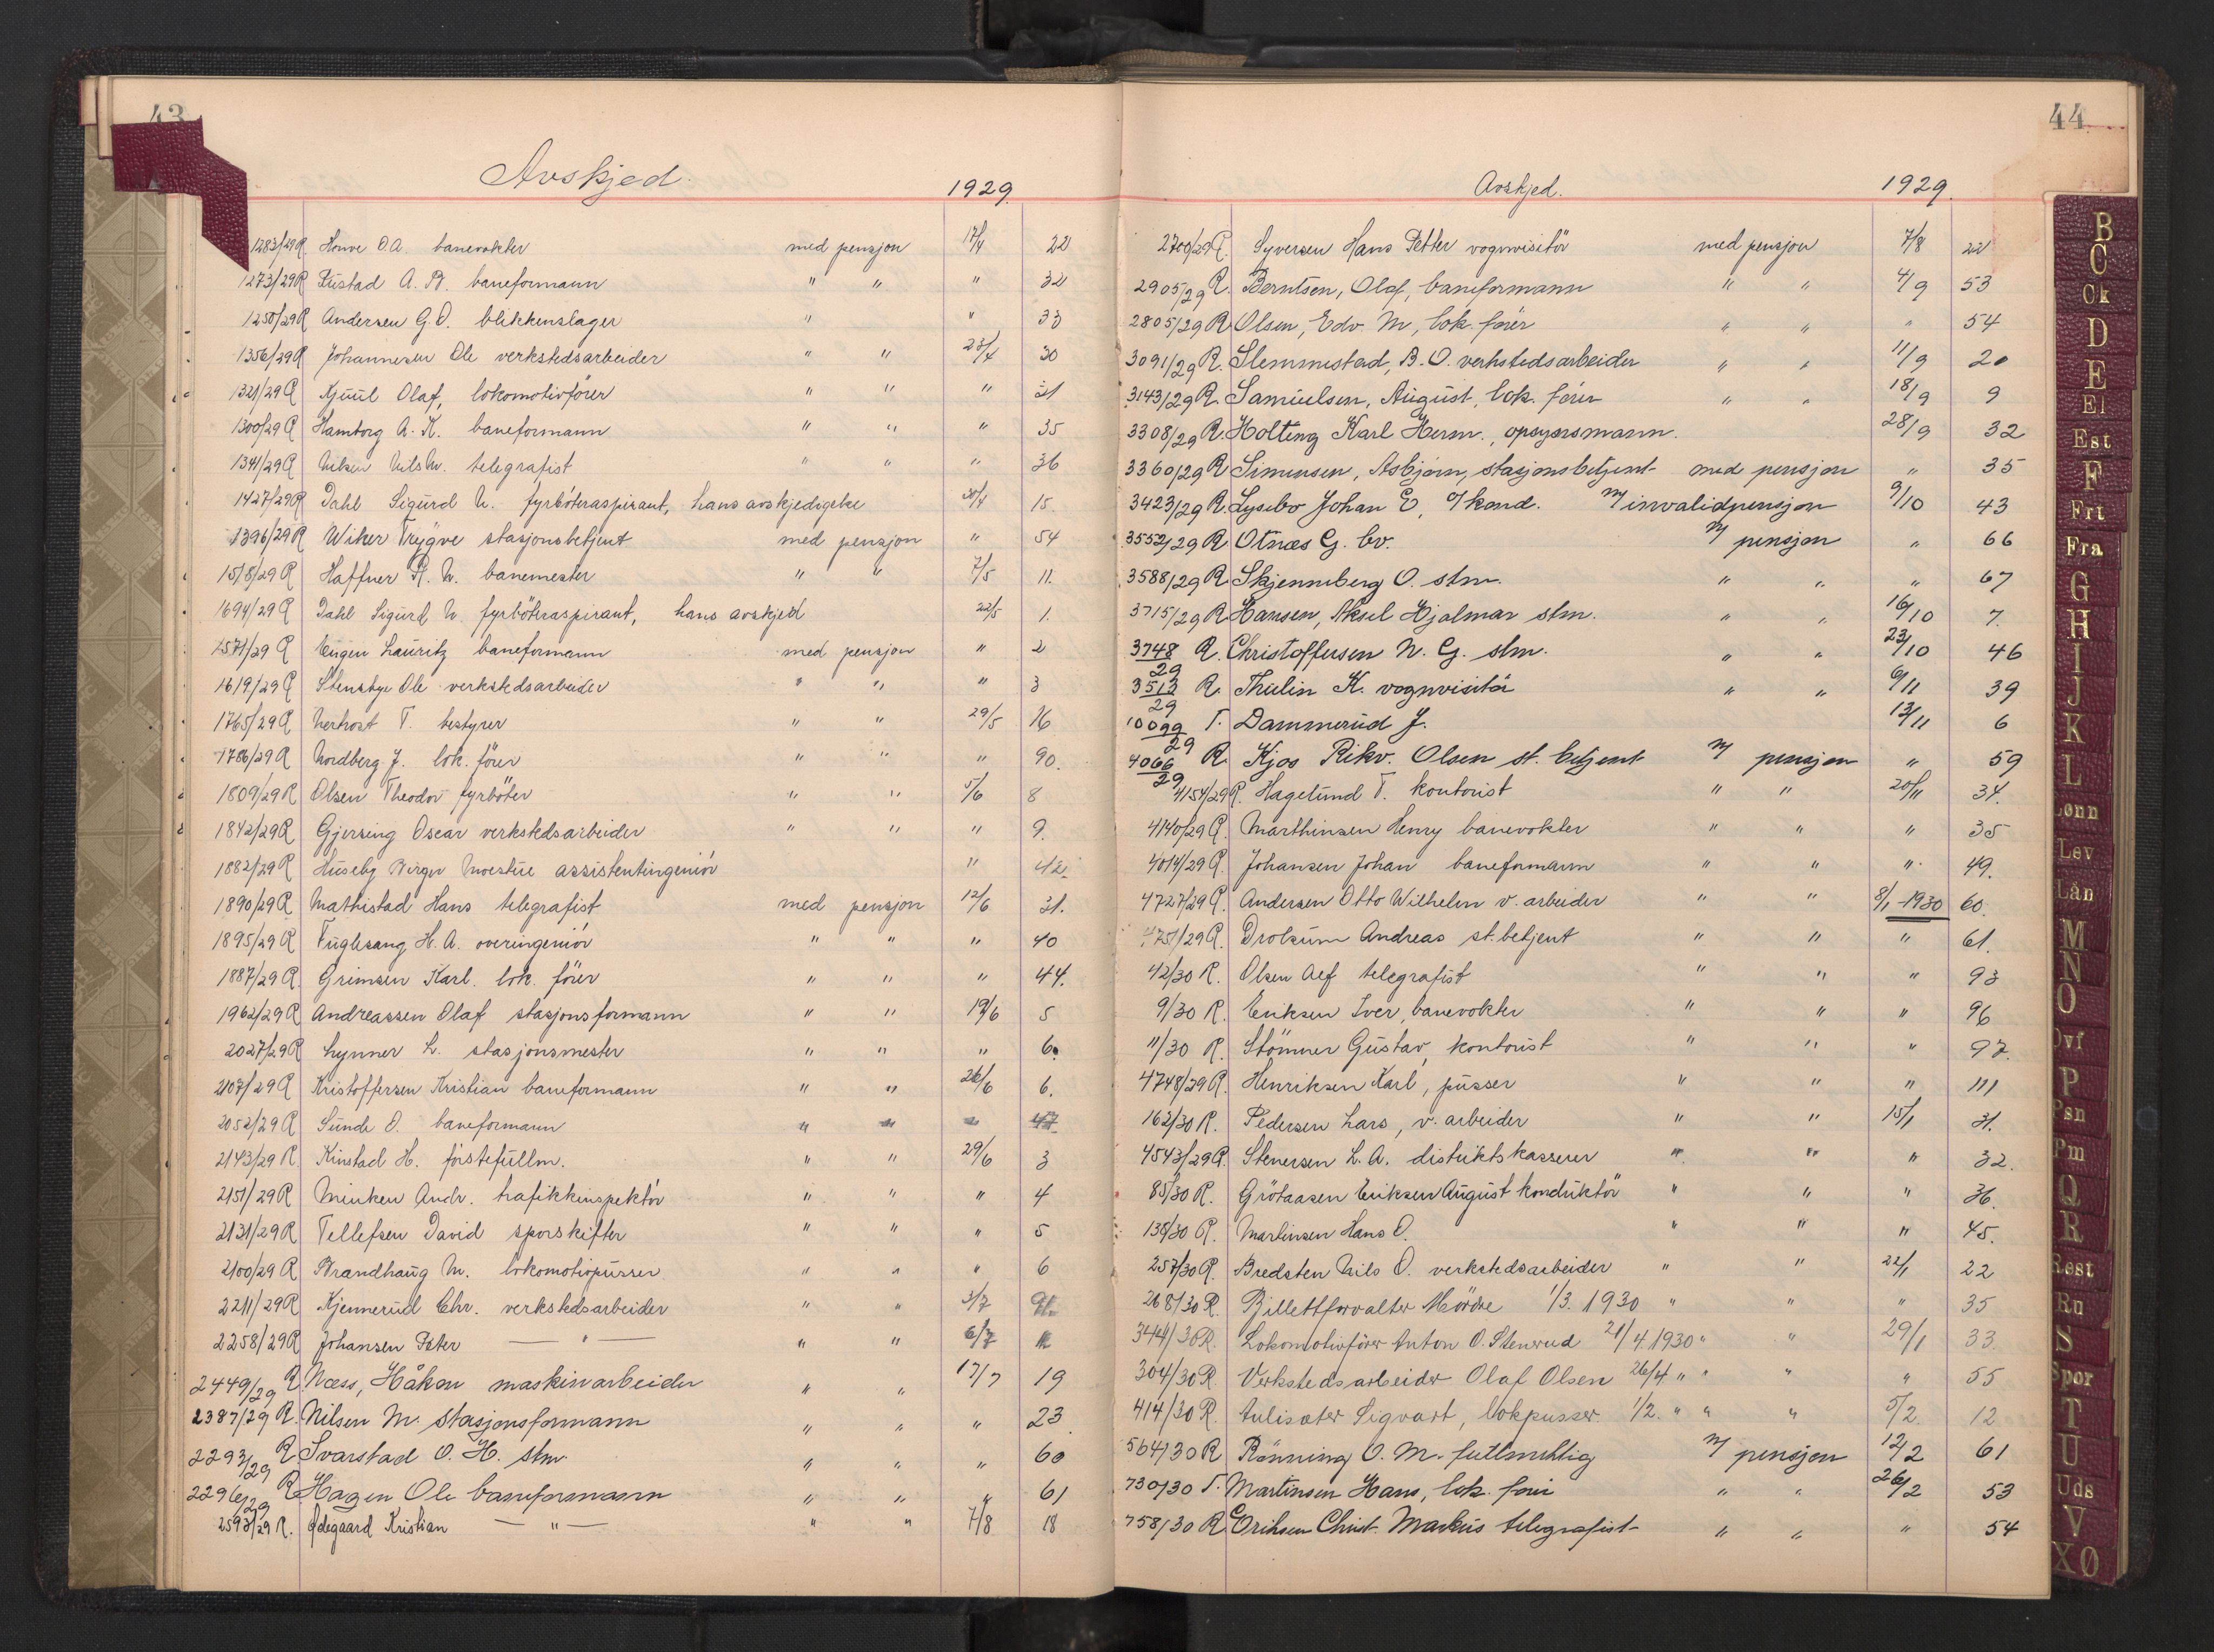 43
Avskjed. 1929.
1283/29R Houve O.A. banevokter med pensjon 17/4 22
1273/29R Rustad A. B. baneformann " " " 32
1250/29R Andersen G.O. blikkenslager " " 33
1356/29R Johannesen Ole verkstedsarbeider " " 23/4 30
1321/29R Kjuul Olaf, lokomotivförer " " " 31
1300/29R Hamborg A. K. baneformann " " " 35
1341/29R Nilsen Nils M. telegrafist " " " 36
1427/29R Dahl Sigurd N. fyrböteraspirant, hans avskjedigelse 30/4 15.
1396/29R Wiker Trygve stasjonsbetjent med pensjon " 54
1518/29R Haffner R. W. banemester " " 7/5 11.
1694/29R Dahl Sigurd N. fyrböteraspirant, hans avskjed 22/5 1.
1571/29R Eugen Lauritz baneformann med pensjon " 2
1619/29R Stensbye Ole verkstedsarbeider " " " 3
1765/29R Nerhost T. bestyrer " " 29/5 16
1786/29R Nordberg J. lok. förer " " " 90.
1809/29R Olsen Theodor fyrböter " " 5/6 8
1842/29R Gjersing Oscar verkstedsarbeider " " " 9.
1882/29R Huseby Birger Moestue assistentingeniör " 42.
1890/29R Mathistad Hans telegrafist med pensjon 12/6 31.
1895/29R Fuglesang H. A. overingeniör " " " 40
1887/29R Grimsen Karl. lok. förer " " " 44.
1962/29R Andreassen Olaf stasjonsformann " " 19/6 5
2027/29R Lynner L. stasjonsmester " " " 6.
2107/29R Kristoffersen Kristian baneformann " " 26/6 6.
2052/29R Sunde O. baneformann " " " 47
2143/29R Kinstad H. förstefullm. " " 29/6 3
2151/29R Minken Andr. trafikkinspektör " " " 4
2131/29R Tellefsen David sporskifter " " " 5
2100/29R Brandhaug M. lokomotivpusser " " " 6
2211/29R Kjennerud Chr. verkstedsarbeider " " 3/7
2258/29R Johansen Peter — " — " " 6/7
2449/29 R. Næss, Håkon maskinarbeider " " 17/7 19
2387/29 R. Nilsen M. stasjonsformann " " " 23
2293/29 R Svarstad O. H. stm. " " " 60
2296/29 R Hagen Ole baneformann " " " 61
2593/29 R. Ødegaard Kristian — " — " " 7/8 18
44
Avskjed. 1929.
2700/29R. Syversen Hans Petter vognvisitör med pensjon 7/8 22
2905/29 R. Berntsen, Olaf, baneformann " " 4/9 53
2805/29 R Olsen, Edv. M, lok. förer " " " 54
3091/29 R. Slemmestad, B. O. verkstedsarbeider " " 11/9 20
3143/29 R. Samuelsen, August, lok. förer " " 18/9 9
3308/29 R. Holting Karl Herm., opsynsmann. 28/9 32
3360/29 R Simensen, Asbjørn, stasjonsbetjent med pensjon " 35
3423/29 R. Lysebo Johan E, o/kond. m/ invalidpensjon 9/10 43
3552/29 R Otnæs G. bv. m/ pensjon " 66
3588/29 R Skjennberg O. stm. " " " 67
3715/29 R Hansen, Aksel Hjalmar stm. " " 16/10 7.
3748/29 R. Christoffersen N. G. stm. " " 23/10 46
3513/29 R. Thulin K. vognvisitör " " 6/11 39
10099/29 T. Dammerud J. 13/11 6
4066/29 R. Kjos Rikv. Olsen st. betjent m/ pensjon " 59
4154/29R. Hagelund T. kontorist " " 20/11 34.
4140/29R. Marthinsen Henry banevokter " " " 35
4014/29R. Johansen Johan baneformann " " " 49.
4727/29R. Andersen Otto Wilhelm v. arbeider " " 8/1-1930 60.
4751/29R. Drolsum Andreas st. betjent " " " 61.
42/30 R. Olsen Alf telegrafist " " " 93
9/30 R. Eriksen Iver, banevokter " " " 96
11/30 R. Stömner Gustav, kontorist " " " 97.
4748/29R. Henriksen Karl, pusser " " " 111
162/30R. Pedersen Lars, v. arbeider " " 15/1 31.
4543/29R. Stenersen L. A. distriktskasserer " " " 32.
85/30 R. Grötaasen Eriksen August konduktör " " " 36.
138/30 R. Martinsen Hans O. " " " 45.
257/30R. Bredsten Nils O. verkstedsarbeider " " 22/1 22
268/30R. Billettforvalter Mördre 1/3. 1930 " " " 35
344/30R. Lokomotivförer Anton O. Stenerud 21/4.1930 " " 29/1 33
304/30R. Verkstedsarbeider Olaf Olsen 26/4 " " " " 55
414/30R. Aulisæter Sigvart, lokpusser 1/2. " " " 5/2. 12
564/30R Rönning O. M. fullmektig m/ pensjon 12/2 61
730/30 T. Martinsen Hans, lok. förer " " 26/2 53
758/30 R Eriksen Christ. Markus telegrafist " " " 54
B
C
Ck
D
E
El
Est
F
Frt
Fra
G
H
I
J
K
L
Lønn
Lev
Lån
M
N
O
Ovf
P
Psn
Pm
Q
R
Rest
Ru
S
Spor
T
U
Uds
V
XØ